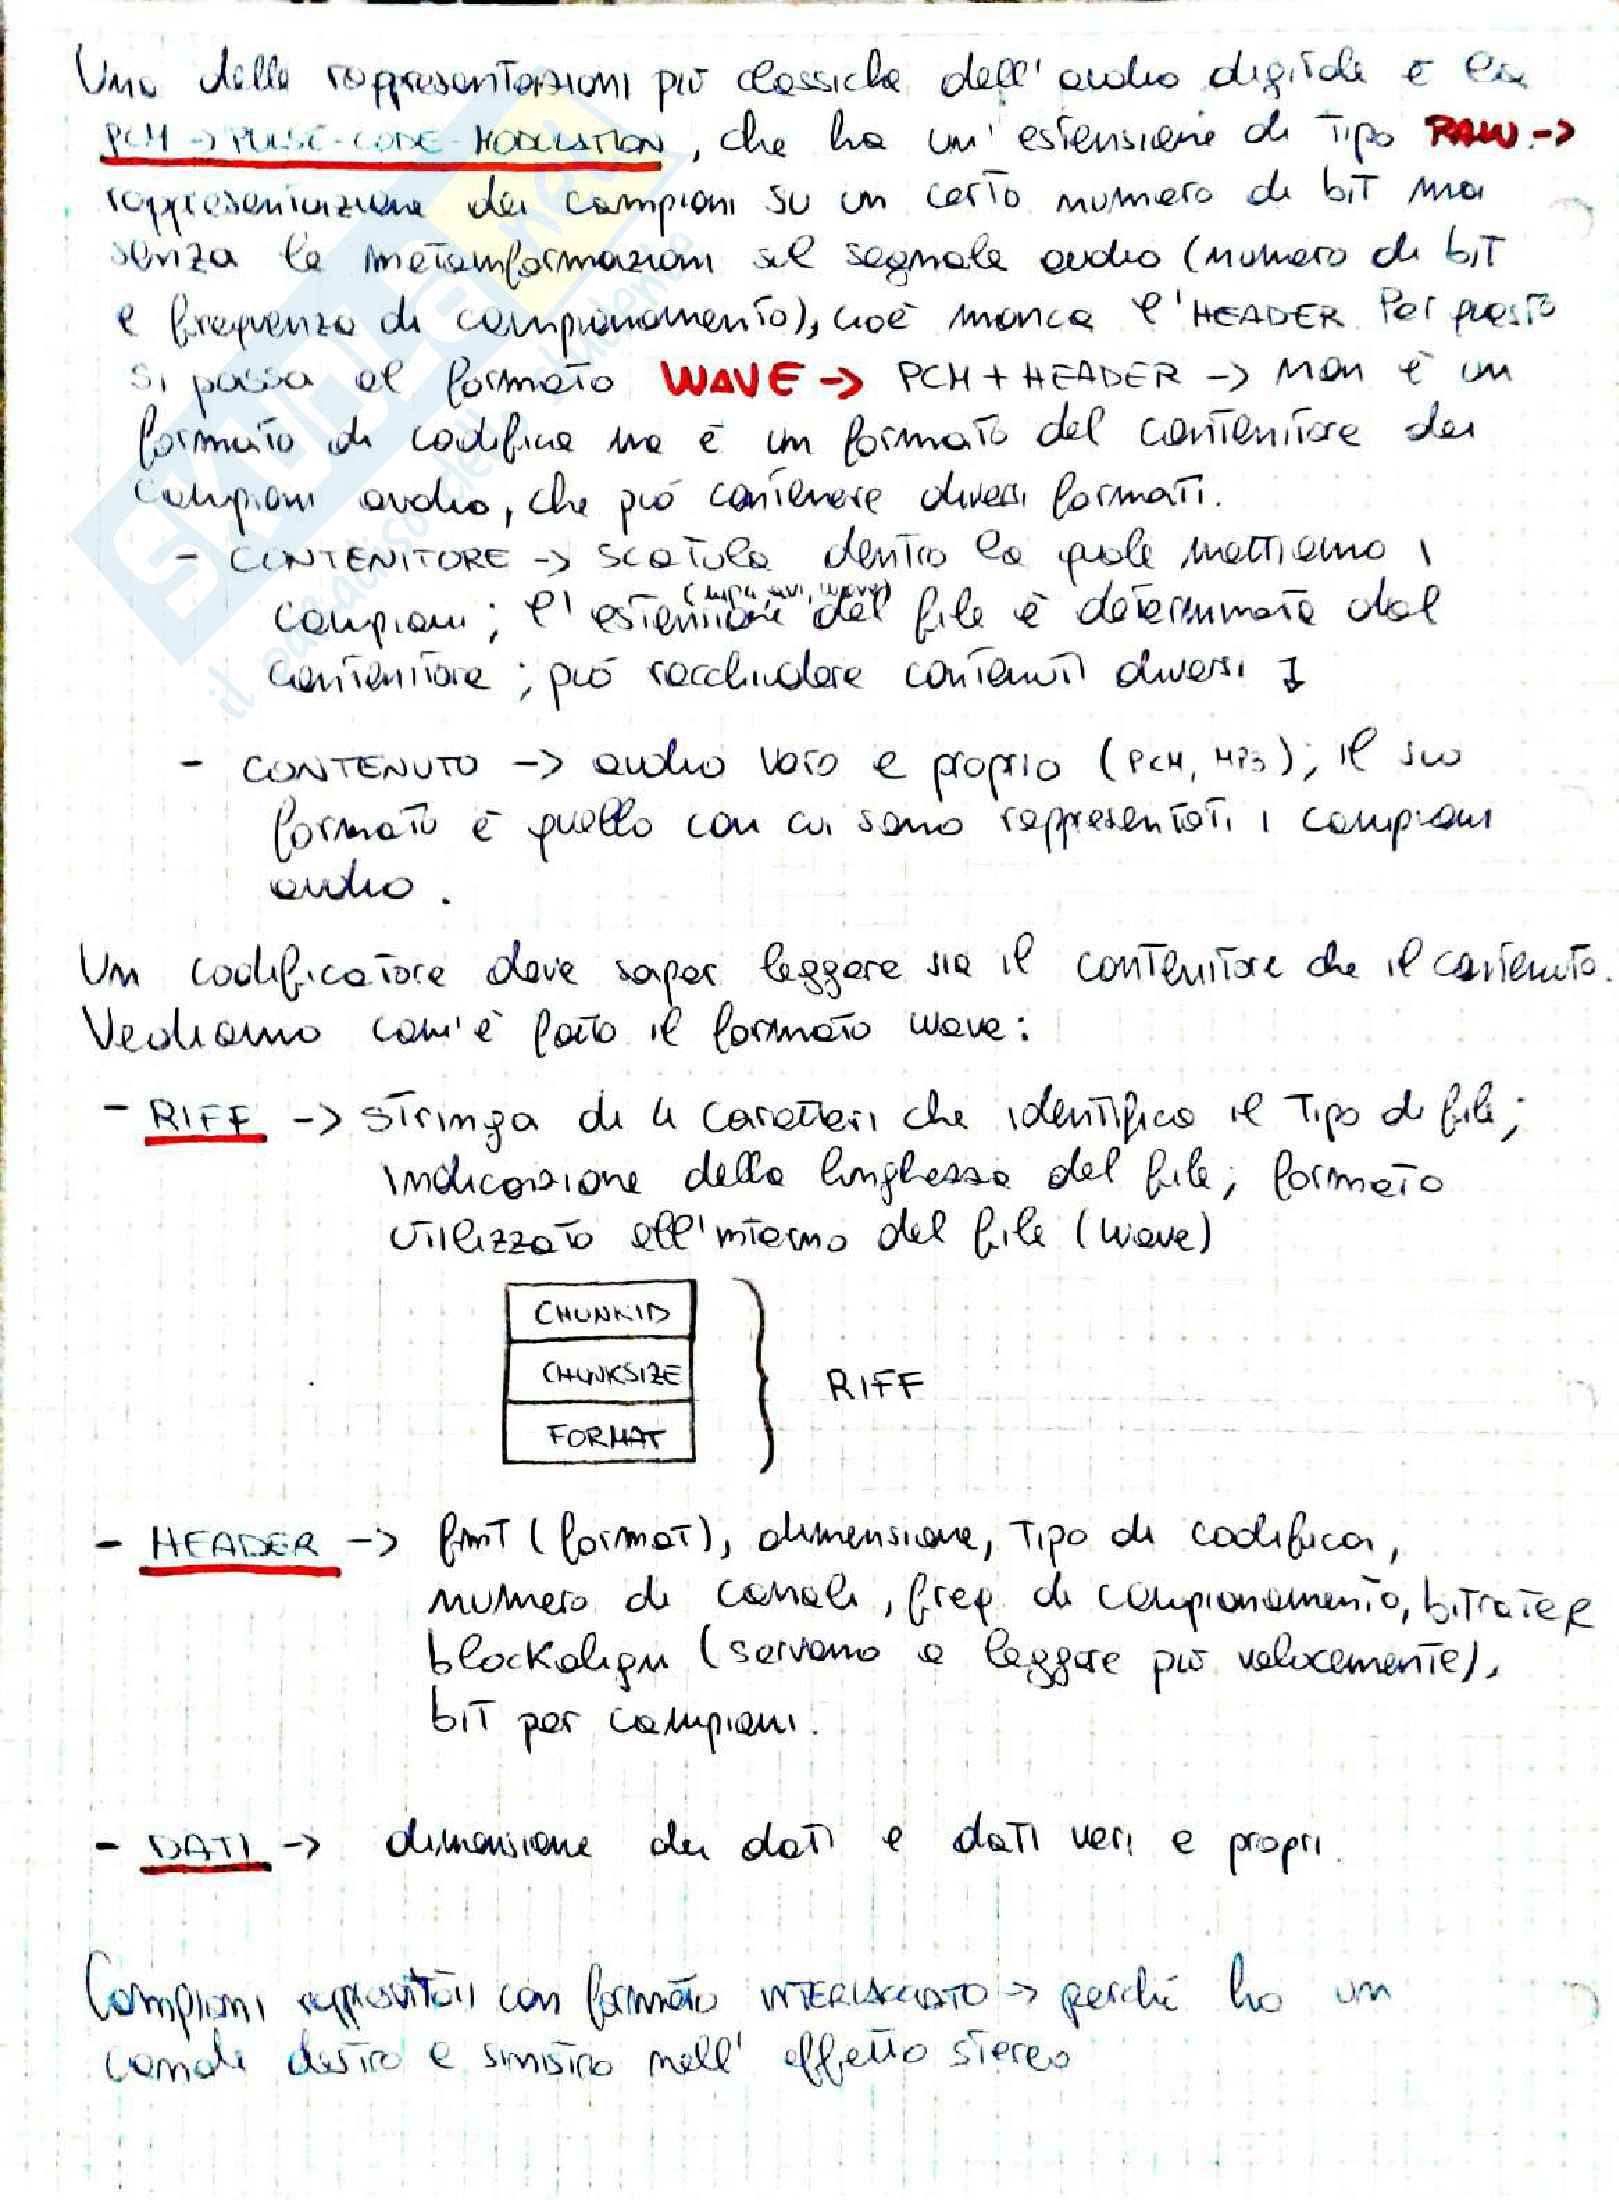 Una delle rappresentazioni più classiche dell'audio digitale è la
PCM -> PULSE-CODE-MODULATION, che ha un'estensione di tipo RAW ->
rappresentazione dei campioni su un certo numero di bit ma
senza le metainformazioni sul segnale audio (numero di bit
e frequenza di campionamento), cioè manca l'HEADER. Per questo
si passa al formato WAVE -> PCM + HEADER -> non è un
formato di codifica ma è un formato del contenitore dei
campioni audio, che può contenere diversi formati.
- CONTENITORE -> scatola dentro la quale mettiamo i
campioni; l'estensione (mp4, avi, wave) del file è determinata dal
contenitore; può racchiudere contenuti diversi
- CONTENUTO -> audio vero e proprio (PCM, MP3); il suo
formato è quello con cui sono rappresentati i campioni
audio.
Un codificatore deve saper leggere sia il contenitore che il contenuto.
Vediamo com'è fatto il formato wave:
- RIFF -> stringa di 4 caratteri che identifica il tipo di file;
indicazione della lunghezza del file; formato
utilizzato all'interno del file (wave)
CHUNKID
CHUNKSIZE
FORMAT
RIFF
- HEADER -> fmt (format), dimensione, tipo di codifica,
numero di canali, freq. di campionamento, bitrate e
blockalign (servono a leggere più velocemente),
bit per campioni.
- DATI -> dimensione dei dati e dati veri e propri.
Campioni rappresentati con formato INTERLACCIATO -> perché ho un
canale destro e sinistro nell'effetto stereo
SKUOLA.net
il paradiso dello studente